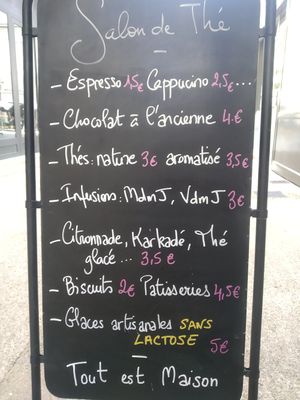 Salon de Thé
–
– Espresso 1,5€ Cappucino 2,5€...
– Chocolat à l'ancienne 4€
– Thés: nature 3€ aromatisé 3,5€
– Infusions: MdmJ, VdmJ 3€
– Citronnade, Karkadé, Thé
glacé... 3,5 €
– Biscuits 2€ Patisseries 4,5€
– Glaces artisanales SANS
LACTOSE 5€
–
Tout est Maison